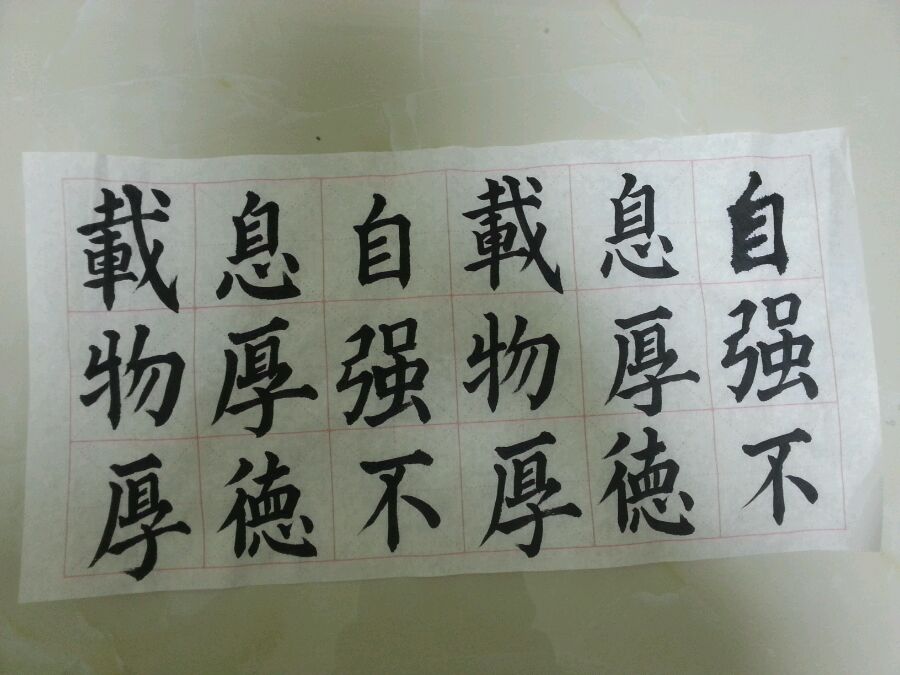 自强不
息厚德
載物厚
自强不
息厚德
載物厚